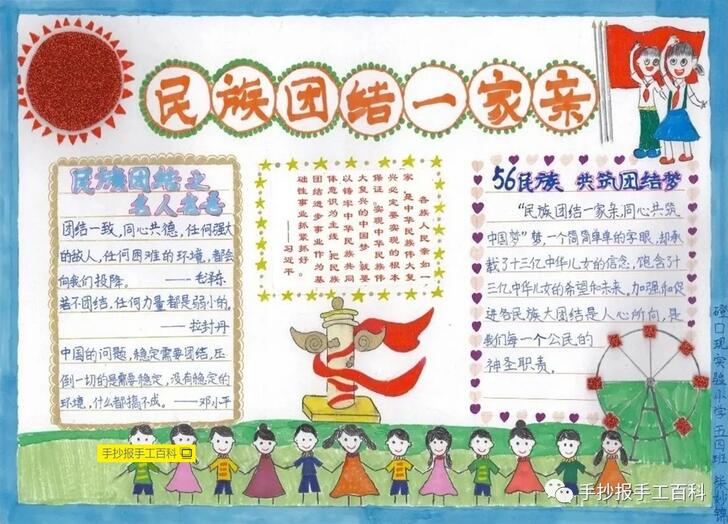 民族团结一家亲
民族团结之
名人名言
团结一致,同心共德,任何强大
的敌人,任何困难的环境,都会
向我们投降。——毛泽东
若不团结,任何力量都是弱小的。
——拉封丹
中国的问题,稳定需要团结,压
倒一切的是需要稳定,没有稳定的
环境,什么都搞不成。——邓小平
各族人民亲如一
家,是中华民族伟大复
兴必定要实现的根本
保证。实现中华民族伟
大复兴的中国梦,就要
以铸牢中华民族共同
体意识为主线,把民族
团结进步事业作为基
础性事业抓紧抓好。
——习近平
56民族 共筑团结梦
“民族团结一家亲,同心共筑
中国梦”梦,一个简简单单的字眼,却承
载了十三亿中华儿女的信念,饱含了十
三亿中华儿女的希望和未来。加强和促
进各民族大团结是人心所向,是
我们每一个公民的
神圣职责。
实验小学五四班
手抄报手工百科
手抄报手工百科